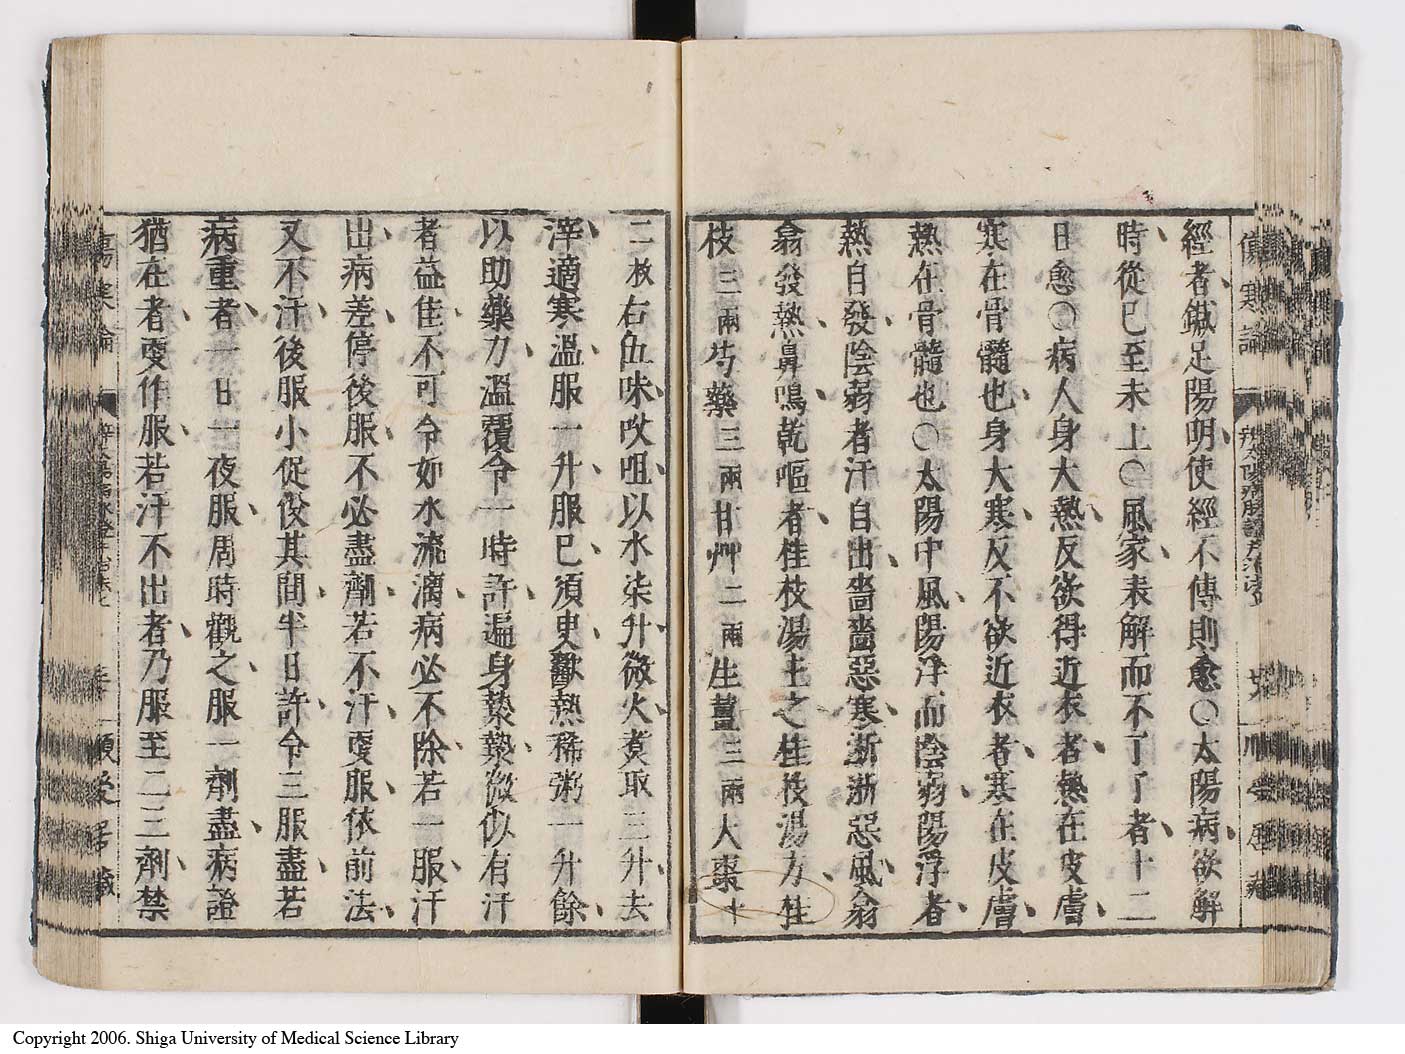 經者鍼足陽明使經不傳則愈○太陽病欲解
時從巳至未上○風家表解而不了了者十二
日愈○病人身大熱反欲得近衣者熱在皮膚
寒在骨髓也身大寒反不欲近衣者寒在皮膚
熱在骨髓也○太陽中風陽浮而陰弱陽浮者
熱自發陰弱者汗自出嗇嗇惡寒淅淅惡風翕
翕發熱鼻鳴乾嘔者桂枝湯主之桂枝湯方桂
枝三兩芍藥三兩甘艸二兩生薑三兩大棗十
二枚右伍味㕮咀以水柒升微火煮取三升去
滓適寒溫服一升服巳須臾歠熱稀粥一升餘
以助藥力溫覆令一時許遍身漐漐微似有汗
者益佳不可令如水流漓病必不除若一服汗
出病差停後服不必盡劑若不汗更服依前法
又不汗後服小促役其間半日許令三服盡若
病重者一日一夜服周時觀之服一劑盡病證
猶在者更作服若汗不出者乃服至二三劑禁
傷寒論
Copyright 2006. Shiga University of Medical Science Library